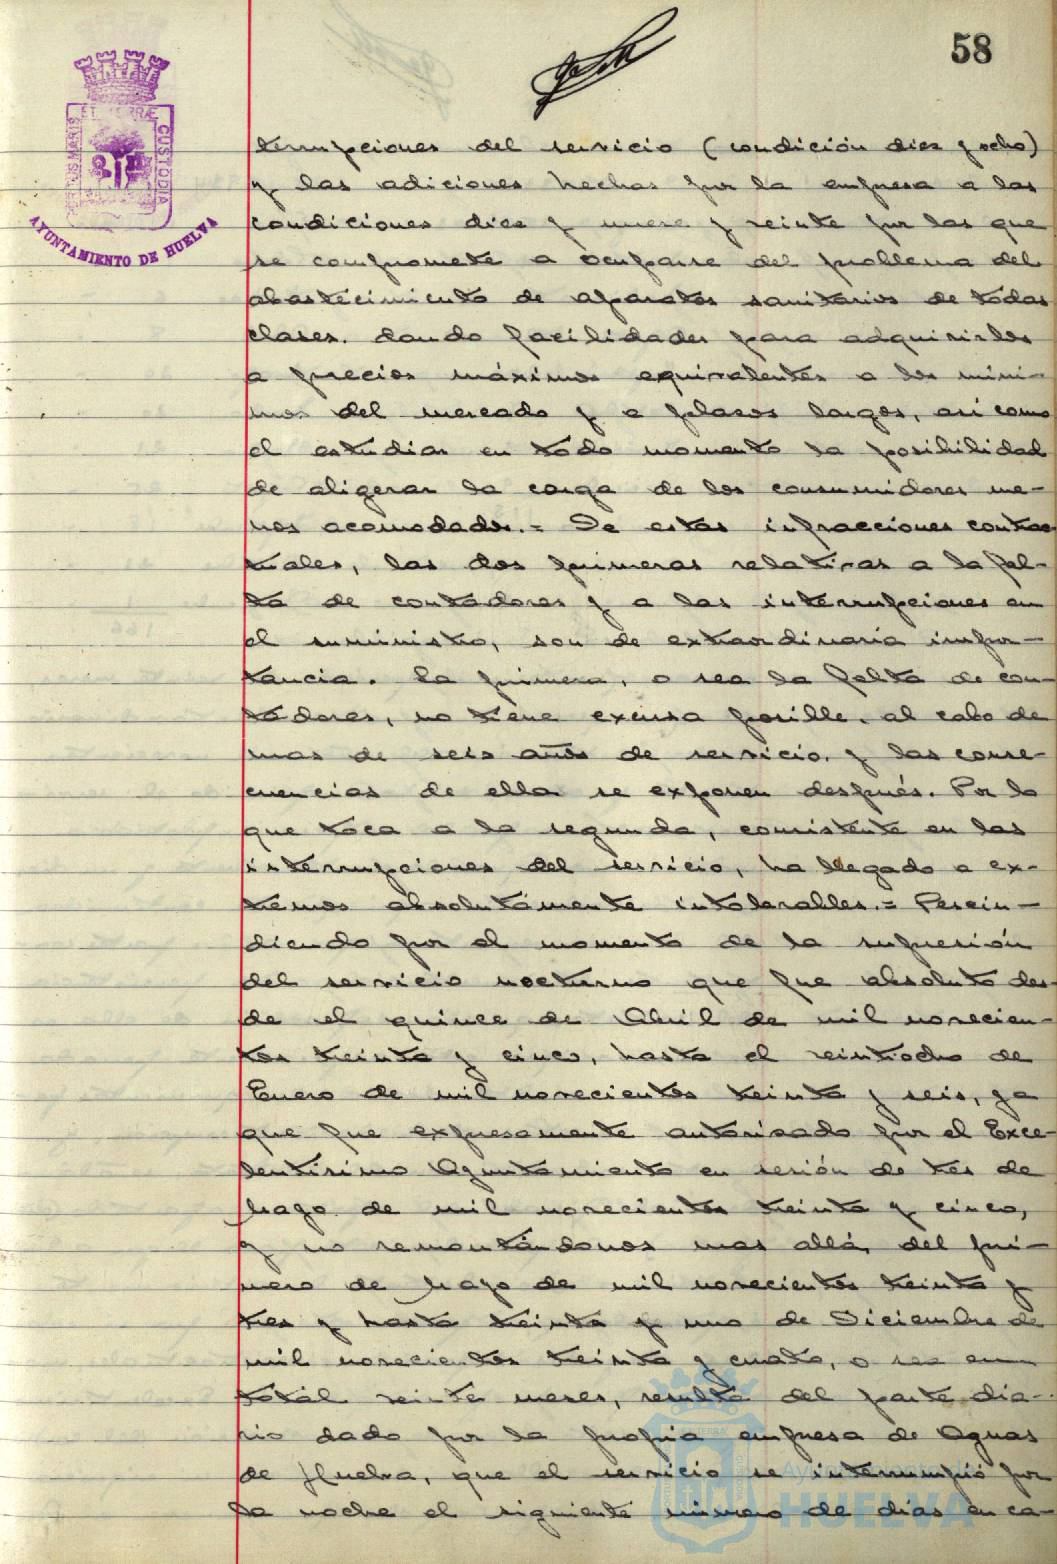 58
ET TERRÆ
PORTUS MARIS
CUSTODIA
AYUNTAMIENTO DE HUELVA
terrupciones del servicio (condición diez y ocho)
y las adiciones hechas por la empresa a las
condiciones diez y nueve y veinte por las que
se compromete a ocuparse del problema del
abastecimiento de aparatos sanitarios de todas
clases, dando facilidades para adquirirlos
a precios máximos equivalentes a los míni-
mos del mercado y a plazos largos, así como
el estudiar en todo momento la posibilidad
de aligerar la carga de los consumidores me-
nos acomodados.= De estas infracciones contrac-
tuales, las dos primeras relativas a la fal-
ta de contadores y a las interrupciones en
el suministro, son de extraordinaria impor-
tancia. La primera, o sea la falta de con-
tadores, no tiene excusa posible, al cabo de
mas de seis años de servicio, y las conse-
cuencias de ella se exponen después. Por lo
que toca a la segunda, consistente en las
interrupciones del servicio, ha llegado a ex-
tremos absolutamente intolerables.= Prescin-
diendo por el momento de la supresión
del servicio nocturno que fue absoluto des-
de el quince de Abril de mil novecien-
tos treinta y cinco, hasta el veintiocho de
Enero de mil novecientos treinta y seis, ya
que fue expresamente autorizado por el Exce-
lentísimo Ayuntamiento en sesión de tres de
Mayo de mil novecientos treinta y cinco,
y no remontándonos mas allá, del pri-
mero de Mayo de mil novecientos treinta y
tres y hasta treinta y uno de Diciembre de
mil novecientos treinta y cuatro, o sea en
total veinte meses, resulta del parte dia-
rio dado por la propia empresa de Aguas
de Huelva, que el servicio se interrumpió por
la noche el siguiente número de días en ca-
Ayuntamiento de
HUELVA